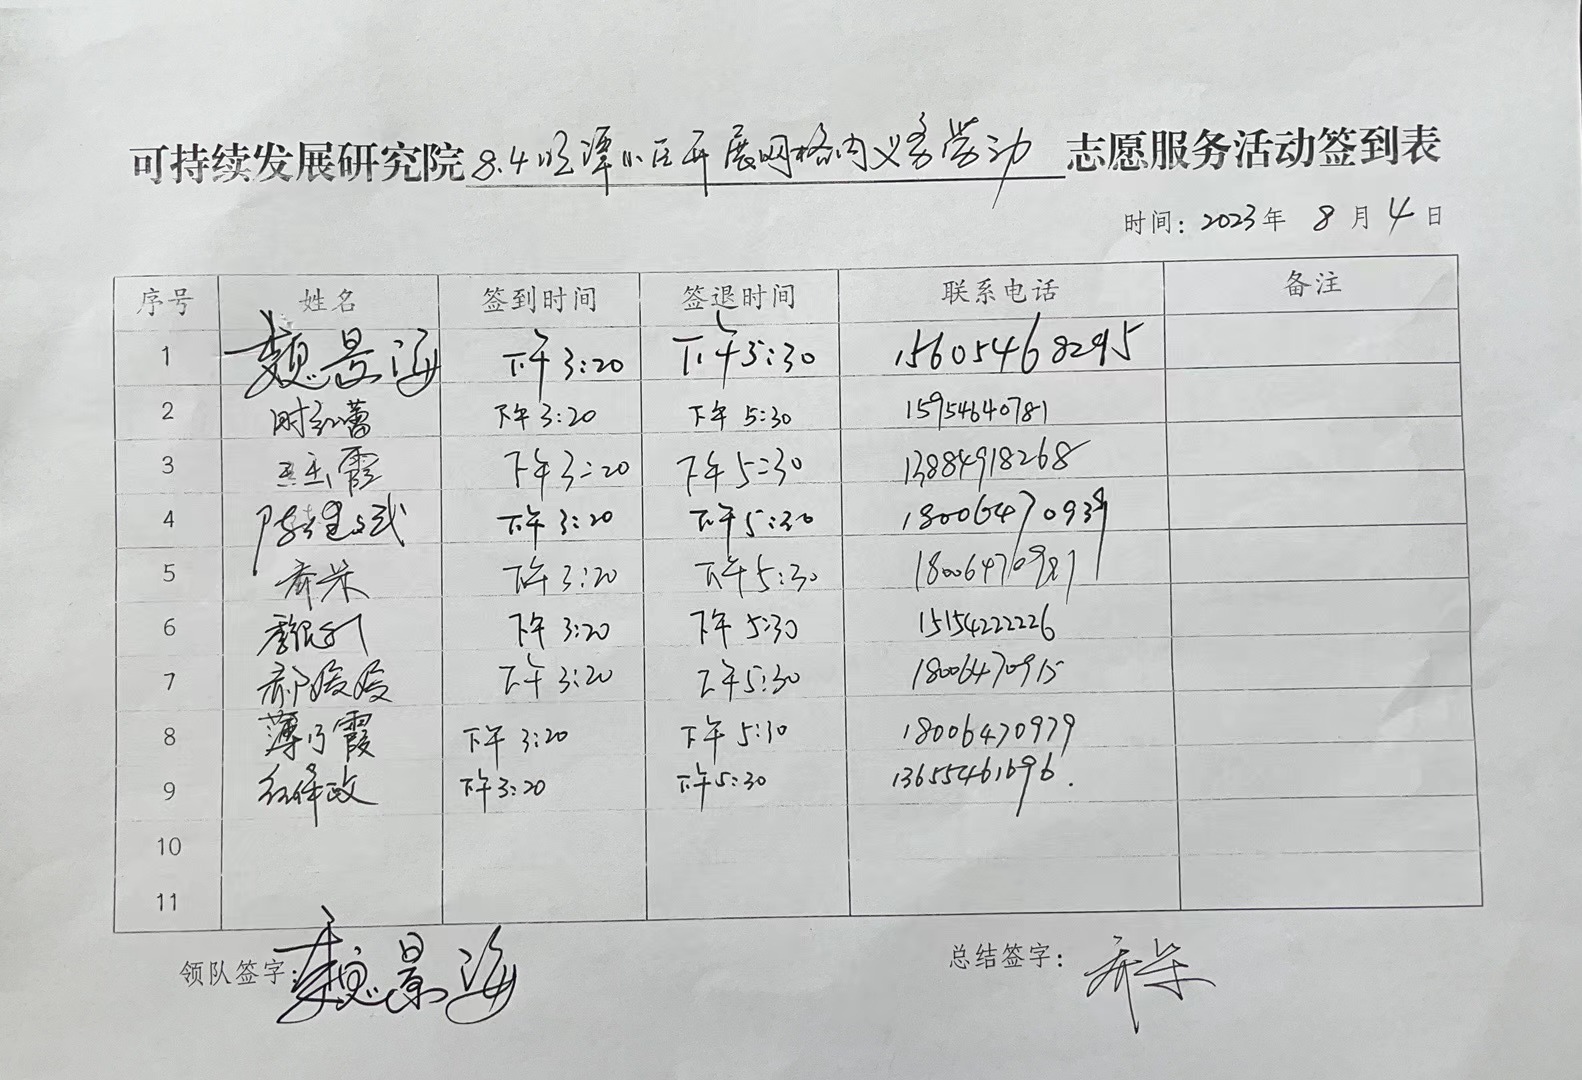 可持续发展研究院 8.4悦潭小区开展网格内义务劳动 志愿服务活动签到表
时间：2023年 8月4日
序号 姓名 签到时间 签退时间 联系电话 备注
1 魏景海 下午3:20 下午5:30 15605468295
2 时红蕾 下午3:20 下午5:30 15954640781
3 王玉霞 下午3:20 下午5:30 13884918268
4 陈建武 下午3:20 下午5:30 18006470939
5 乔荣 下午3:20 下午5:30 18006470981
6 下午3:20 下午5:30 15154222226
7 郝媛媛 下午3:20 下午5:30 18006470915
8 薄乃霞 下午3:20 下午5:30 18006470979
9 下午3:20 下午5:30 13655461696.
10
11
领队签字：魏景海 总结签字：乔荣